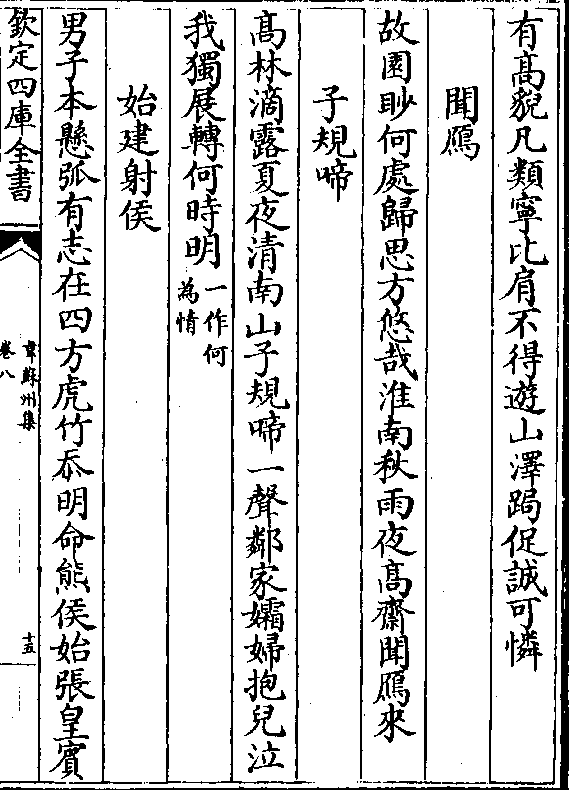 有髙貌凡類寧比肩不得遊山澤跼促誠可憐
聞鴈
故園眇何處歸思方悠哉淮南秋雨夜髙齋聞鴈來
子規啼
髙林滴露夏夜清南山子規啼一聲鄰家孀婦抱兒泣
我獨展轉何時明一作何為情
始建射侯
男子本懸弧有志在四方虎竹忝明命熊侯始張皇賓
欽定四庫全書
韋蘇州集
卷八
十五